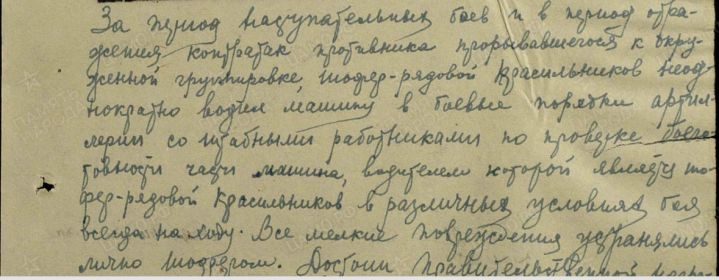 За период наступательных боев и в период отра-
жения контратак противника прорывавшегося к окру-
женной группировке, шофер-рядовой Красильников неод-
нократно водил машину в боевые порядки артил-
лерии со штабными работниками по проверке боего-
товности части машина, водителем которой является шо-
фер-рядовой Красильников в различных условиях боя
всегда на ходу. Все мелкие повреждения устранялись
лично шофером. Достоин правительственной